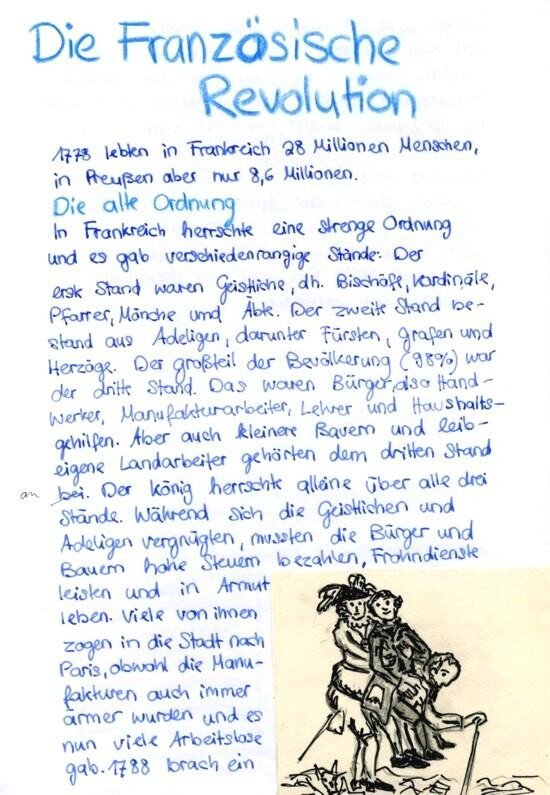 Die Französische
Revolution
1778 lebten in Frankreich 28 Millionen Menschen,
in Preußen aber nur 8,6 Millionen.
Die alte Ordnung
In Frankreich herrschte eine strenge Ordnung
und es gab verschiedenrangige Stände: Der
erste Stand waren Geistliche, dh. Bischöfe, Kardinäle,
Pfarrer, Mönche und Äbte. Der zweite Stand be-
stand aus Adeligen, darunter Fürsten, Grafen und
Herzöge. Der großteil der Bevölkerung (98%) war
der dritte Stand. Das waren Bürger, also Hand-
werker, Manufakturarbeiter, Lehrer und Haushalts-
gehilfen. Aber auch kleinere Bauern und leib-
eigene Landarbeiter gehörten dem dritten Stand
an bei. Der König herrschte alleine über alle drei
Stände. Während sich die Geistlichen und
Adeligen vergnügten, mussten die Bürger und
Bauern hohe Steuern bezahlen, Frohndienste
leisten und in Armut
leben. Viele von ihnen
zogen in die Stadt nach
Paris, obwohl die Manu-
fakturen auch immer
ärmer wurden und es
nun viele Arbeitslose
gab. 1788 brach ein